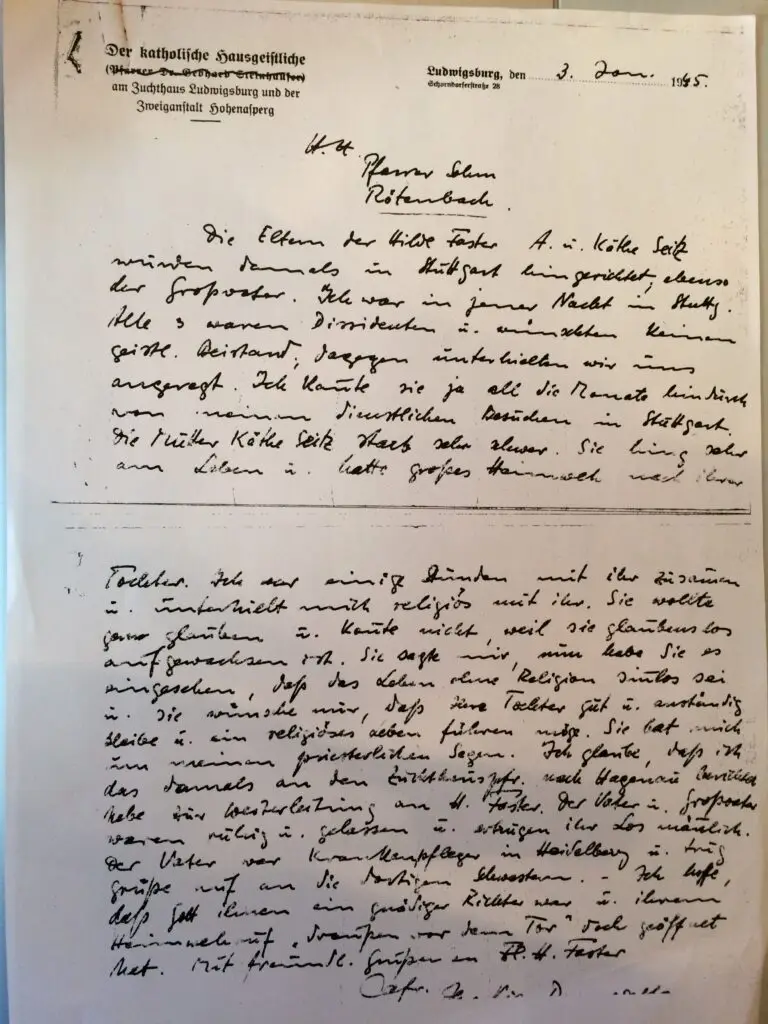 Der katholische Hausgeistliche
(Pfarrer Dr. Gebhard Steinhauser)
am Zuchthaus Ludwigsburg und der
Zweiganstalt Hohenasperg
Ludwigsburg, den 3. Jan. 1945.
Schorndorferstraße 28
H. H.
Pfarrer Sohm
Rötenbach.
Die Eltern der Hilde Faster A. u. Käthe Seitz
wurden damals in Stuttgart hingerichtet, ebenso
der Großvater. Ich war in jener Nacht in Stuttg.
Alle 3 waren Dissidenten u. wünschten keinen
geistl. Beistand, dagegen unterhielten wir uns
angeregt. Ich kannte sie ja all die Monate hindurch
von meinen dienstlichen Besuchen in Stuttgart.
Die Mutter Käthe Seitz starb sehr schwer. Sie hing sehr
am Leben u. hatte großes Heimweh nach ihrer
Tochter. Ich war einige Stunden mit ihr zusammen
u. unterhielt mich religiös mit ihr. Sie wollte
gerne glauben u. konnte nicht, weil sie glaubenslos
aufgewachsen ist. Sie sagte mir, nun habe Sie es
eingesehen, daß das Leben ohne Religion sinlos sei
u. sie wünsche nur, daß ihre Tochter gut u. anständig
bleibe u. ein religiöses Leben führen möge. Sie bat mich
um meinen priesterlichen Segen. Ich glaube, daß ich
das damals an den Zuchthauspfr. nach Hagenau berichtet
habe zur Weiterleitung an H. Faster. Der Vater u. Großvater
waren ruhig u. gelassen u. ertrugen ihr Los männlich.
Der Vater war Krankenpfleger in Heidelberg u. trug
Grüße auf an die dortigen Schwestern. - Ich hoffe,
daß Gott ihnen ein gnädiger Richter war u. ihrem
Heimwehruf „draußen vor dem Tor" doch geöffnet
hat. Mit freundl. Grüßen an H. Faster